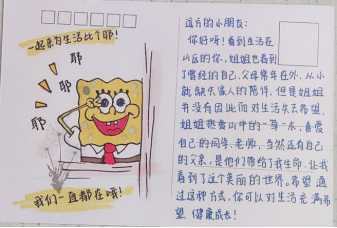 一起来为生活比个耶!
耶
耶
耶
我们一直都在哦!
远方的小朋友:
你好呀!看到生活在
山区的你,姐姐也看到
了曾经的自己,父母常年在外,从小
就缺失家人的陪伴,但是姐姐
并没有因此而对生活失去希望,
姐姐热爱山中的一草一木,喜爱
自己的同学、老师,当然还有自己
的父亲,是他们带给我生命,让我
看到了这个美丽的世界。希望通
过这种方式,你可以对生活充满希
望,健康成长!